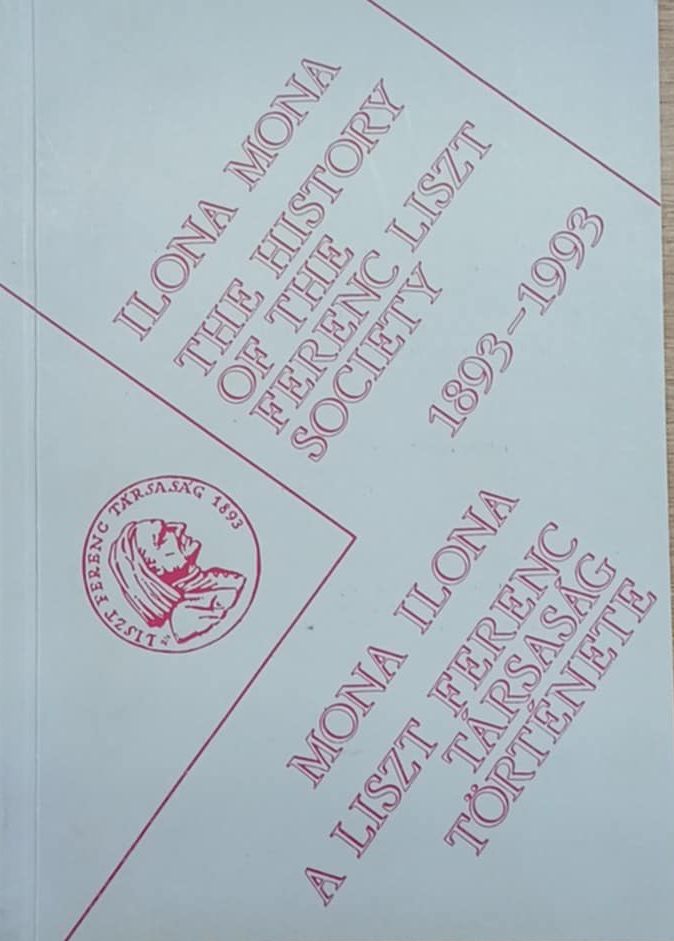 ILONA MONA
THE HISTORY
OF THE
FERENC LISZT
SOCIETY
1893–1993
MONA ILONA
A LISZT FERENC
TÁRSASÁG
TÖRTÉNETE
LISZT FERENC TÁRSASÁG 1893